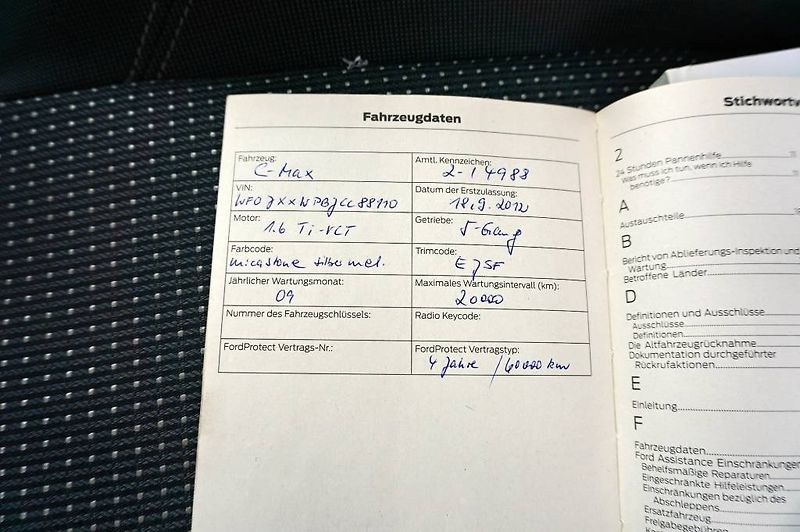 Fahrzeugdaten
Fahrzeug:
C-Max
Amtl. Kennzeichen:
2-14988
VIN:
WF0JXXWPBJCL88110
Datum der Erstzulassung:
18.9.2012
Motor:
1.6 Ti-VCT
Getriebe:
5-Gang
Farbcode:
micastone silber met.
Trimcode:
EJSF
Jährlicher Wartungsmonat:
09
Maximales Wartungsintervall (km):
20000
Nummer des Fahrzeugschlüssels:
Radio Keycode:
FordProtect Vertrags-Nr.:
FordProtect Vertragstyp:
4 Jahre /60000 km
2
24 Stunden Pannenhilfe
Was muss ich tun, wenn ich Hilfe
benötige?
A
Austauschteile
B
Bericht von Ablieferungs-Inspektion und
Wartung
Betroffene Länder
D
Definitionen und Ausschlüsse
Ausschlüsse
Definitionen
Die Altfahrzeugrücknahme
Dokumentation durchgeführter
Rückrufaktionen
E
Einleitung
F
Fahrzeugdaten
Ford Assistance Einschränkungen
Behelfsmäßige Reparaturen
Eingeschränkte Hilfeleistungen
Einschränkungen bezüglich des
Abschleppens
Ersatzfahrzeug
Freigabegebühren